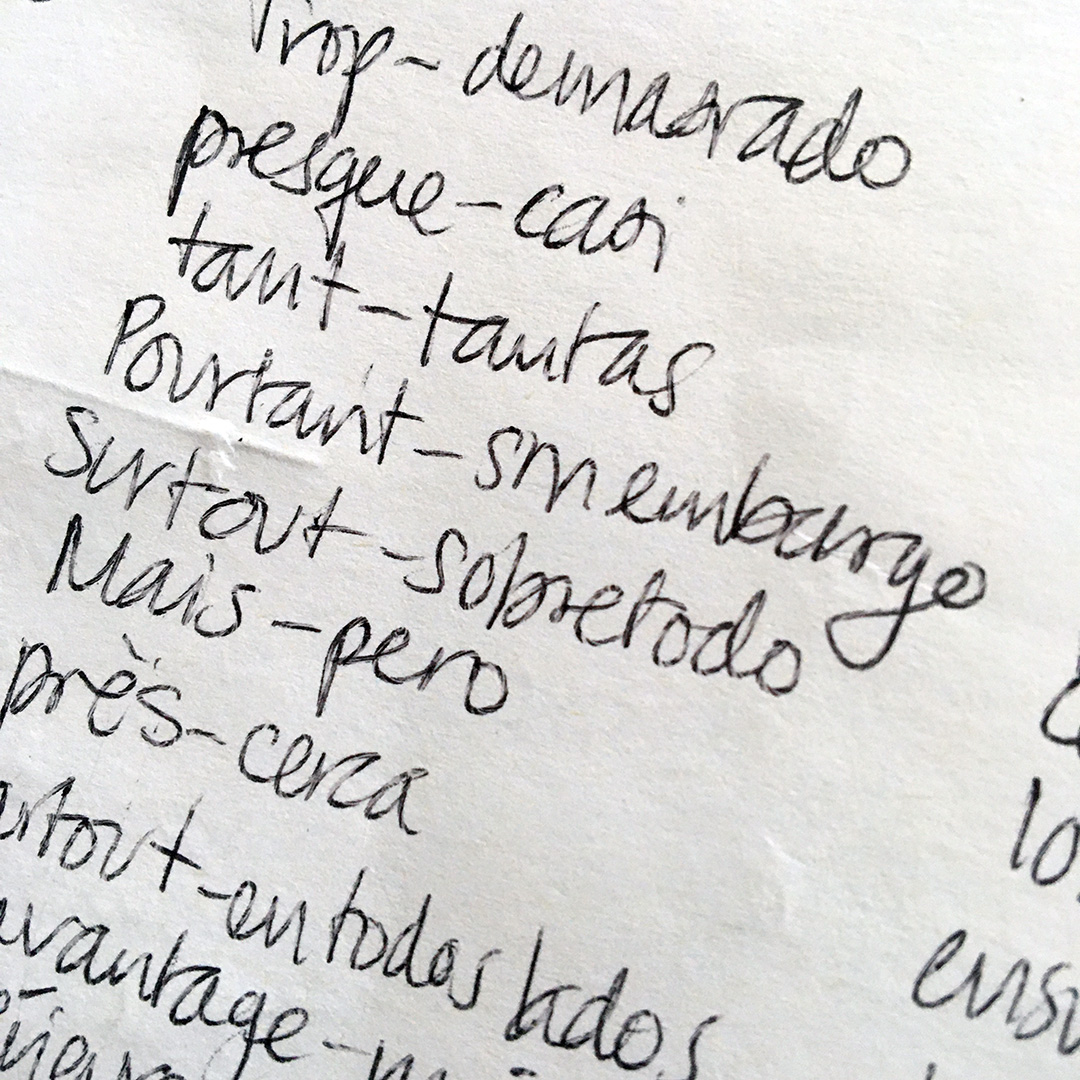 Trop - demasiado
presque - casi
tant - tantas
Pourtant - sin embargo
Surtout - sobretodo
Mais - pero
près - cerca
artout - en todos lados
avantage -
ensu